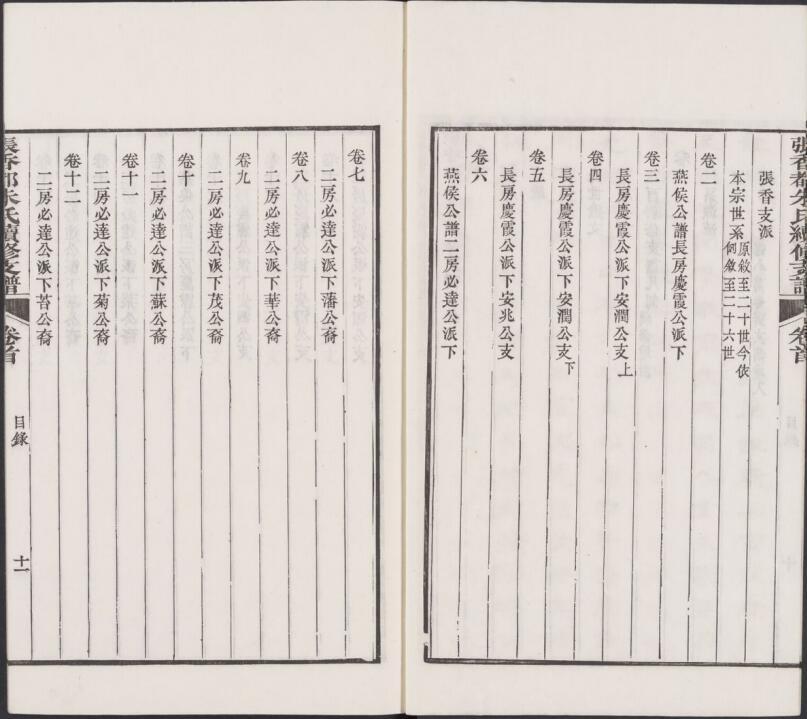 張香支派
本宗世系原敘至二十世今依例敘至二十六世
卷二
燕侯公譜長房慶霞公派下
卷三
長房慶霞公派下安潤公支上
卷四
長房慶霞公派下安潤公支下
卷五
長房慶霞公派下安兆公支
卷六
燕侯公譜二房必達公派下
卷七
二房必達公派下藩公裔
卷八
二房必達公派下華公裔
卷九
二房必達公派下茂公裔
卷十
二房必達公派下蘇公裔
卷十一
二房必達公派下菊公裔
卷十二
二房必達公派下苔公裔
張香都朱氏續修支譜
卷首
目錄
十一